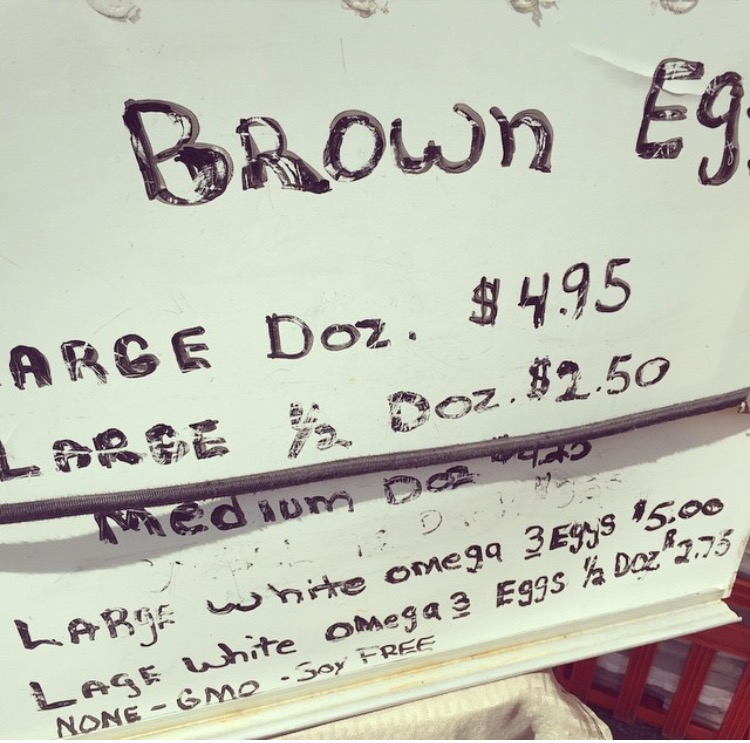 BROWN Eg
ARGE Doz. $4.95
LARGE ½ Doz. $2.50
Medium Doz $4.25
LARge white omega 3 Eggs $5.00
LAGE white omega 3 EGGS ½ DOZ $2.75
NONE-GMO-SOY FREE